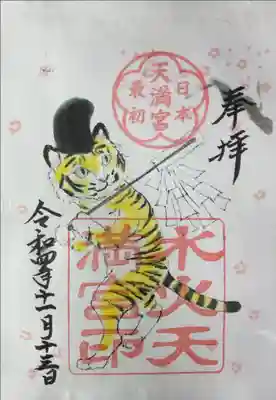 奉拝
日本最初
天満宮
水火天
満宮印
令和四年十一月十三日